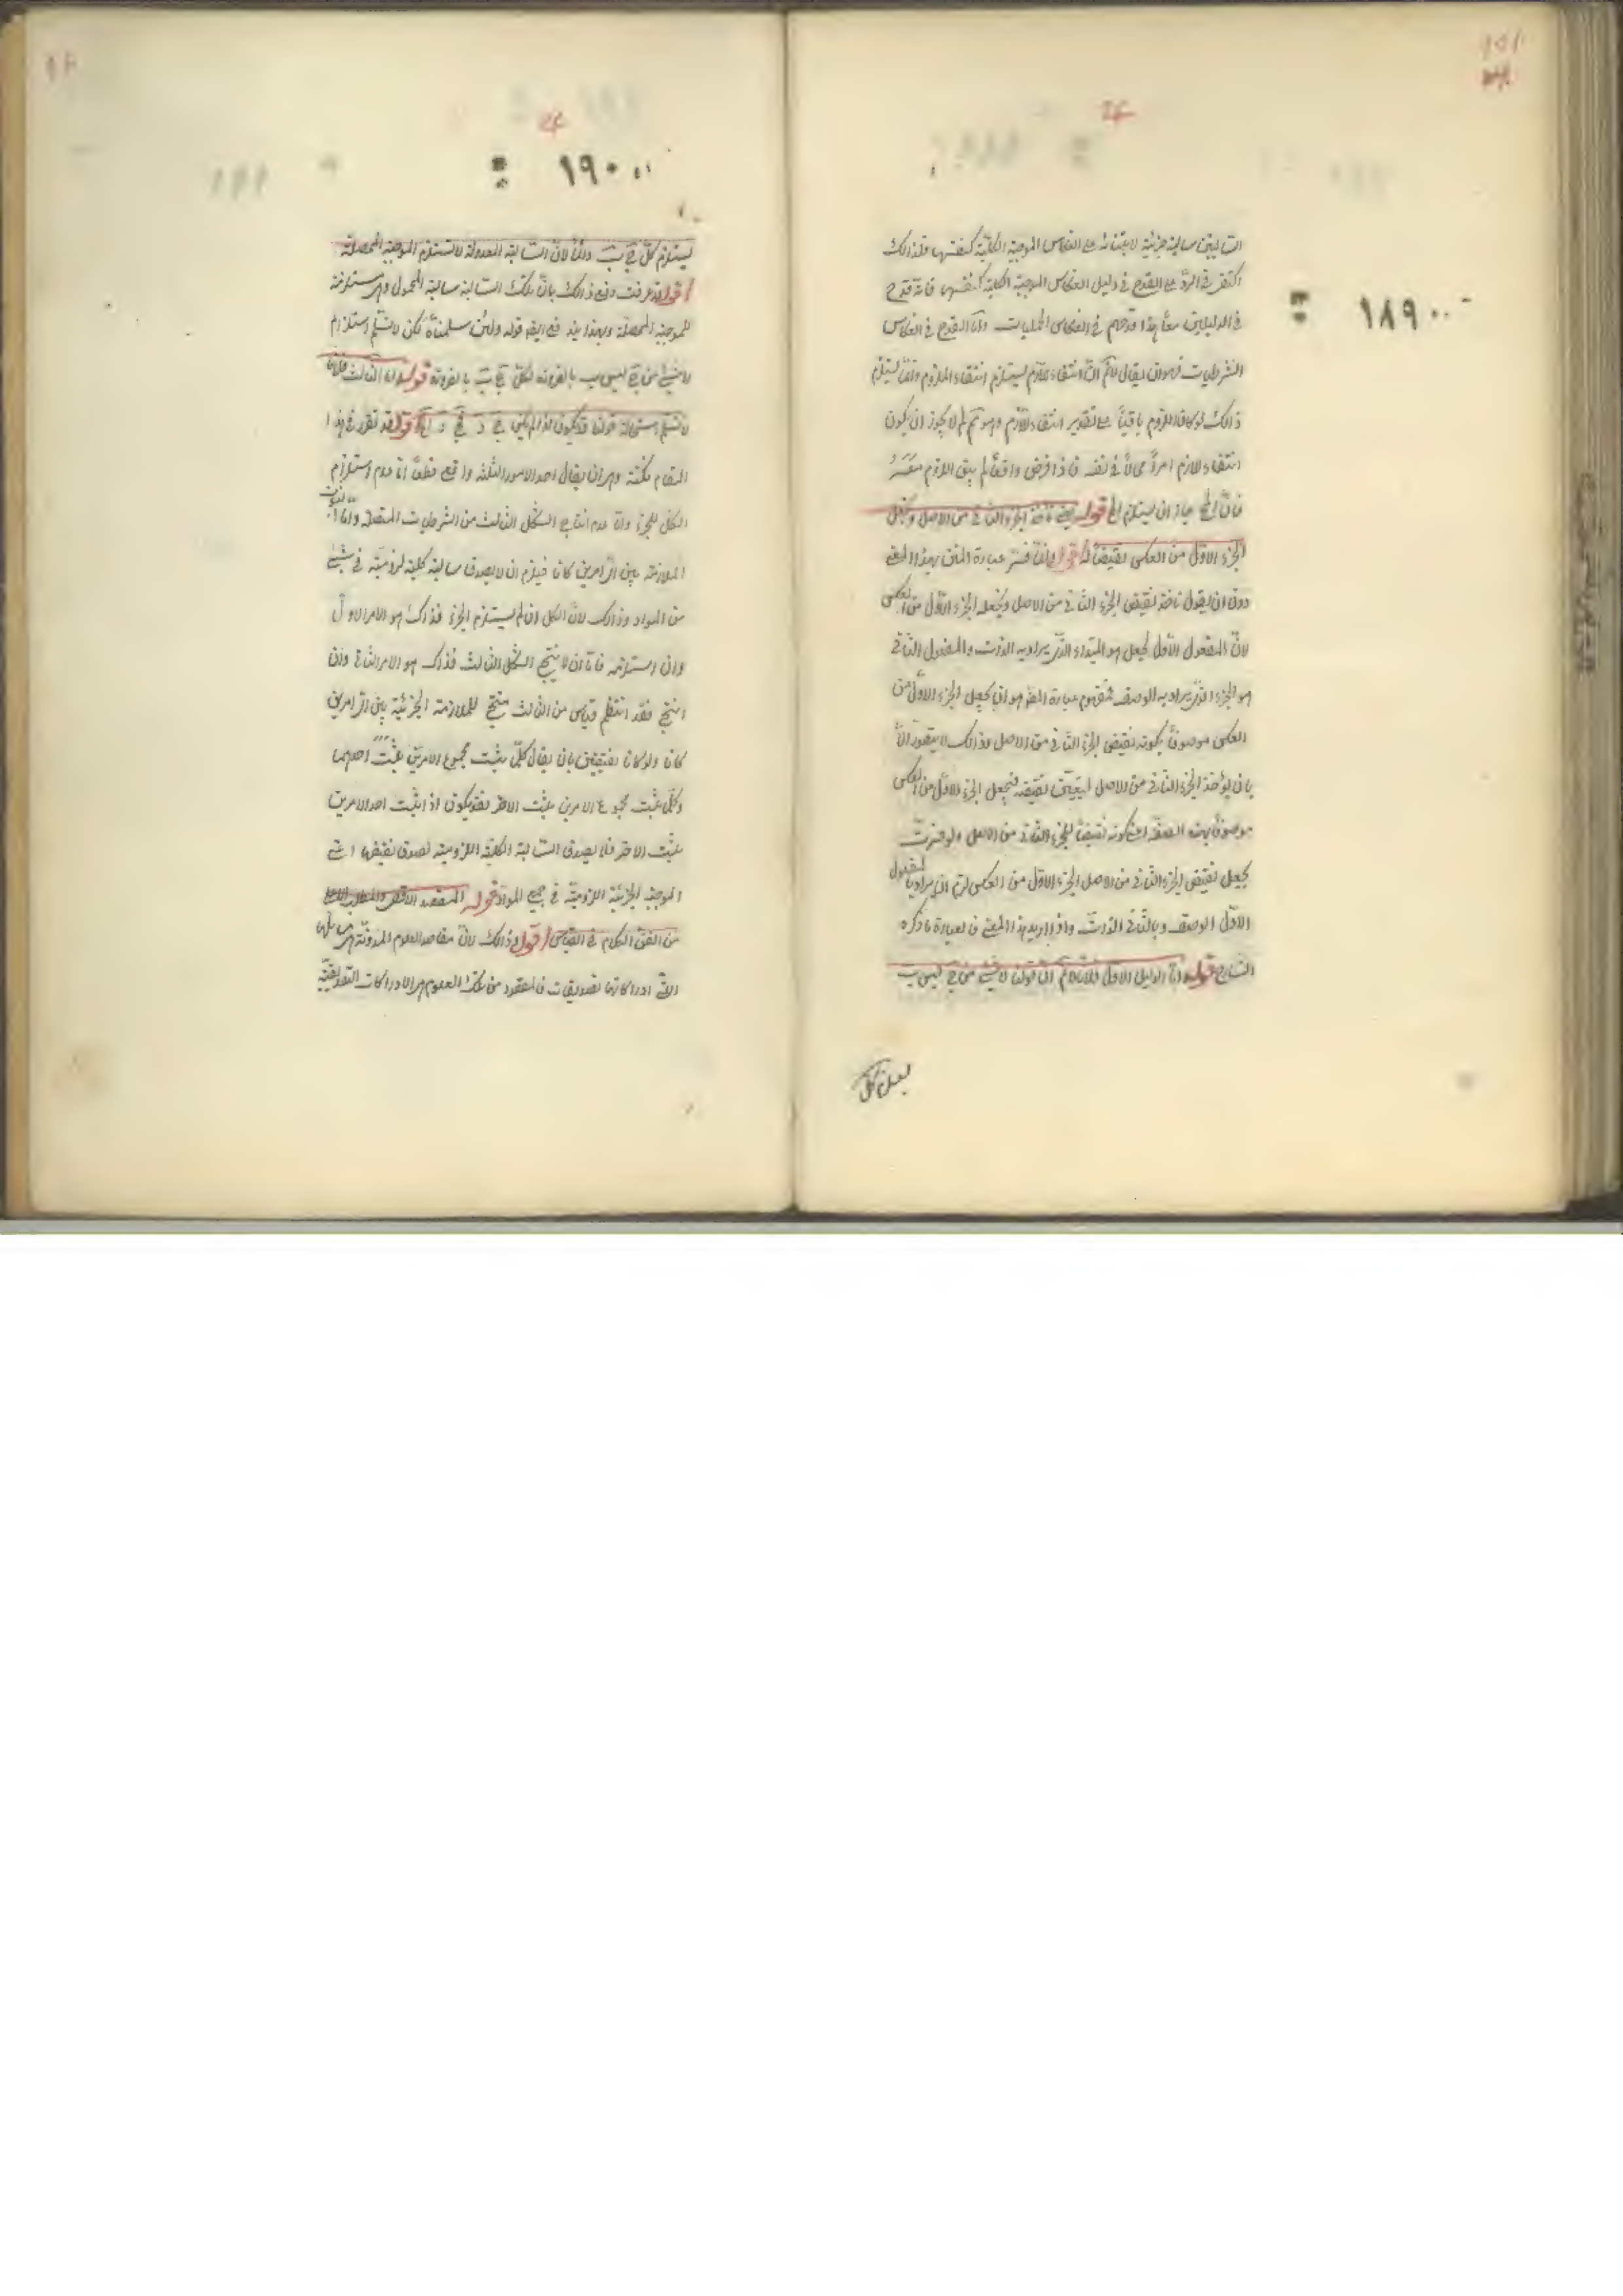 السالبتين سالبة جزئية لابتنائه على انعكاس الموجبة الكلية كنفسها ولذلك
اكتفى في الرد على القوم في دليل انعكاس الموجبة الكلية كنفسها فانه قدح
في الدليلين معا هذا قدحهم في انعكاس الحمليات واما القدح في انعكاس
الشرطيات فهو ان يقال لانم ان انتفاء اللازم يستلزم انتفاء الملزوم وانما يستلزم
ذلك لو كان اللزوم باقيا على تقدير انتفاء اللازم وهو مم لم لا يجوز ان يكون
انتفاء اللازم امرا محالا في نفسه فاذا فرض واقعا لم يبق اللزوم معه
فان المح جاز ان يستلزم المح قوله يعني نأخذ الجزء الثاني من الاصل ونجعل
الجزء الاول من العكس نقيضا له اقول انما فسر عبارة المتن بهذا المعنى
دون ان يقول نأخذ نقيض الجزء الثاني من الاصل ونجعله الجزء الاول من العكس
لان المفعول الاول لجعل هو المبتداء الذي يراد به الذات والمفعول الثاني
هو الجزء الذي يراد به الوصف فمفهوم عبارة المص هو ان يجعل الجزء الاول من
العكس موصوفا بكونه نقيض الجزء الثاني من الاصل وذلك لا يتصور الا
بان يؤخذ الجزء الثاني من الاصل ليتعين نقيضه فيجعل الجزء الاول من العكس
موصوفا بهذه الصفة اعني كونه نقيضا للجزء الثاني من الاصل ولو فسرت
بجعل نقيض الجزء الثاني من الاصل الجزء الاول من العكس لزم ان يراد بالمفعول
الاول الوصف وبالثاني الذات واذا اريد هذا المعنى فالعبارة ما ذكره
الشارح قوله اما الدليل الاول فلانا لانم ان قولنا لا شيء من ج ليس ب
يستلزم كل
١٨٩
١٩٠
يستلزم كل ج ب دائما لان السالبة المعدولة لا تستلزم الموجبة المحصلة
اقول قد عرفت دفع ذلك بان تلك السالبة سالبة المحمول وهي مستلزمة
للموجبة المحصلة وبهذا يندفع ايضا قوله ولئن سلمناه لكن لانسلم استلزام
لا شيء من ج ليس ب بالضرورة لكل ج ب بالضرورة قوله واما الثالث فلانا
لانسلم استحالة قولنا قد يكون اذا لم يكن ج د فج د اقول قد تقرر في هذا
المقام نكتة وهي ان يقال احد الامور الثلثة واقع قطعا اما عدم استلزام
الكل للجزء واما عدم انتاج الشكل الثالث من الشرطيات المتصلة واما ثبوت
الملازمة بين اي امرين كانا فيلزم ان لا يصدق سالبة كلية لزومية في شيء
من المواد وذلك لان الكل ان لم يستلزم الجزء فذاك هو الامر الاول
وان استلزمه فاما ان لا ينتج الشكل الثالث فذاك هو الامر الثاني وان
انتج فقد انتظم قياس من الثالث منتج للملازمة الجزئية بين اي امرين
كانا ولو كانا نقيضين بان يقال كلما يثبت مجموع الامرين يثبت احدهما
وكلما يثبت مجموع الامرين يثبت الاخر فقد يكون اذا يثبت احد الامرين
يثبت الاخر فلا يصدق السالبة الكلية اللزومية لصدق نقيضها اعني
الموجبة الجزئية اللزومية في جميع المواد قوله المقصد الاقصى والمطلب الاعلى
من الفن الكلام في القياس اقول وذلك لان مقاصد العلوم المدونة هي مسائلها
التي ادراكاتها تصديقات فالمقصود من تلك العلوم هي الادراكات التصديقية